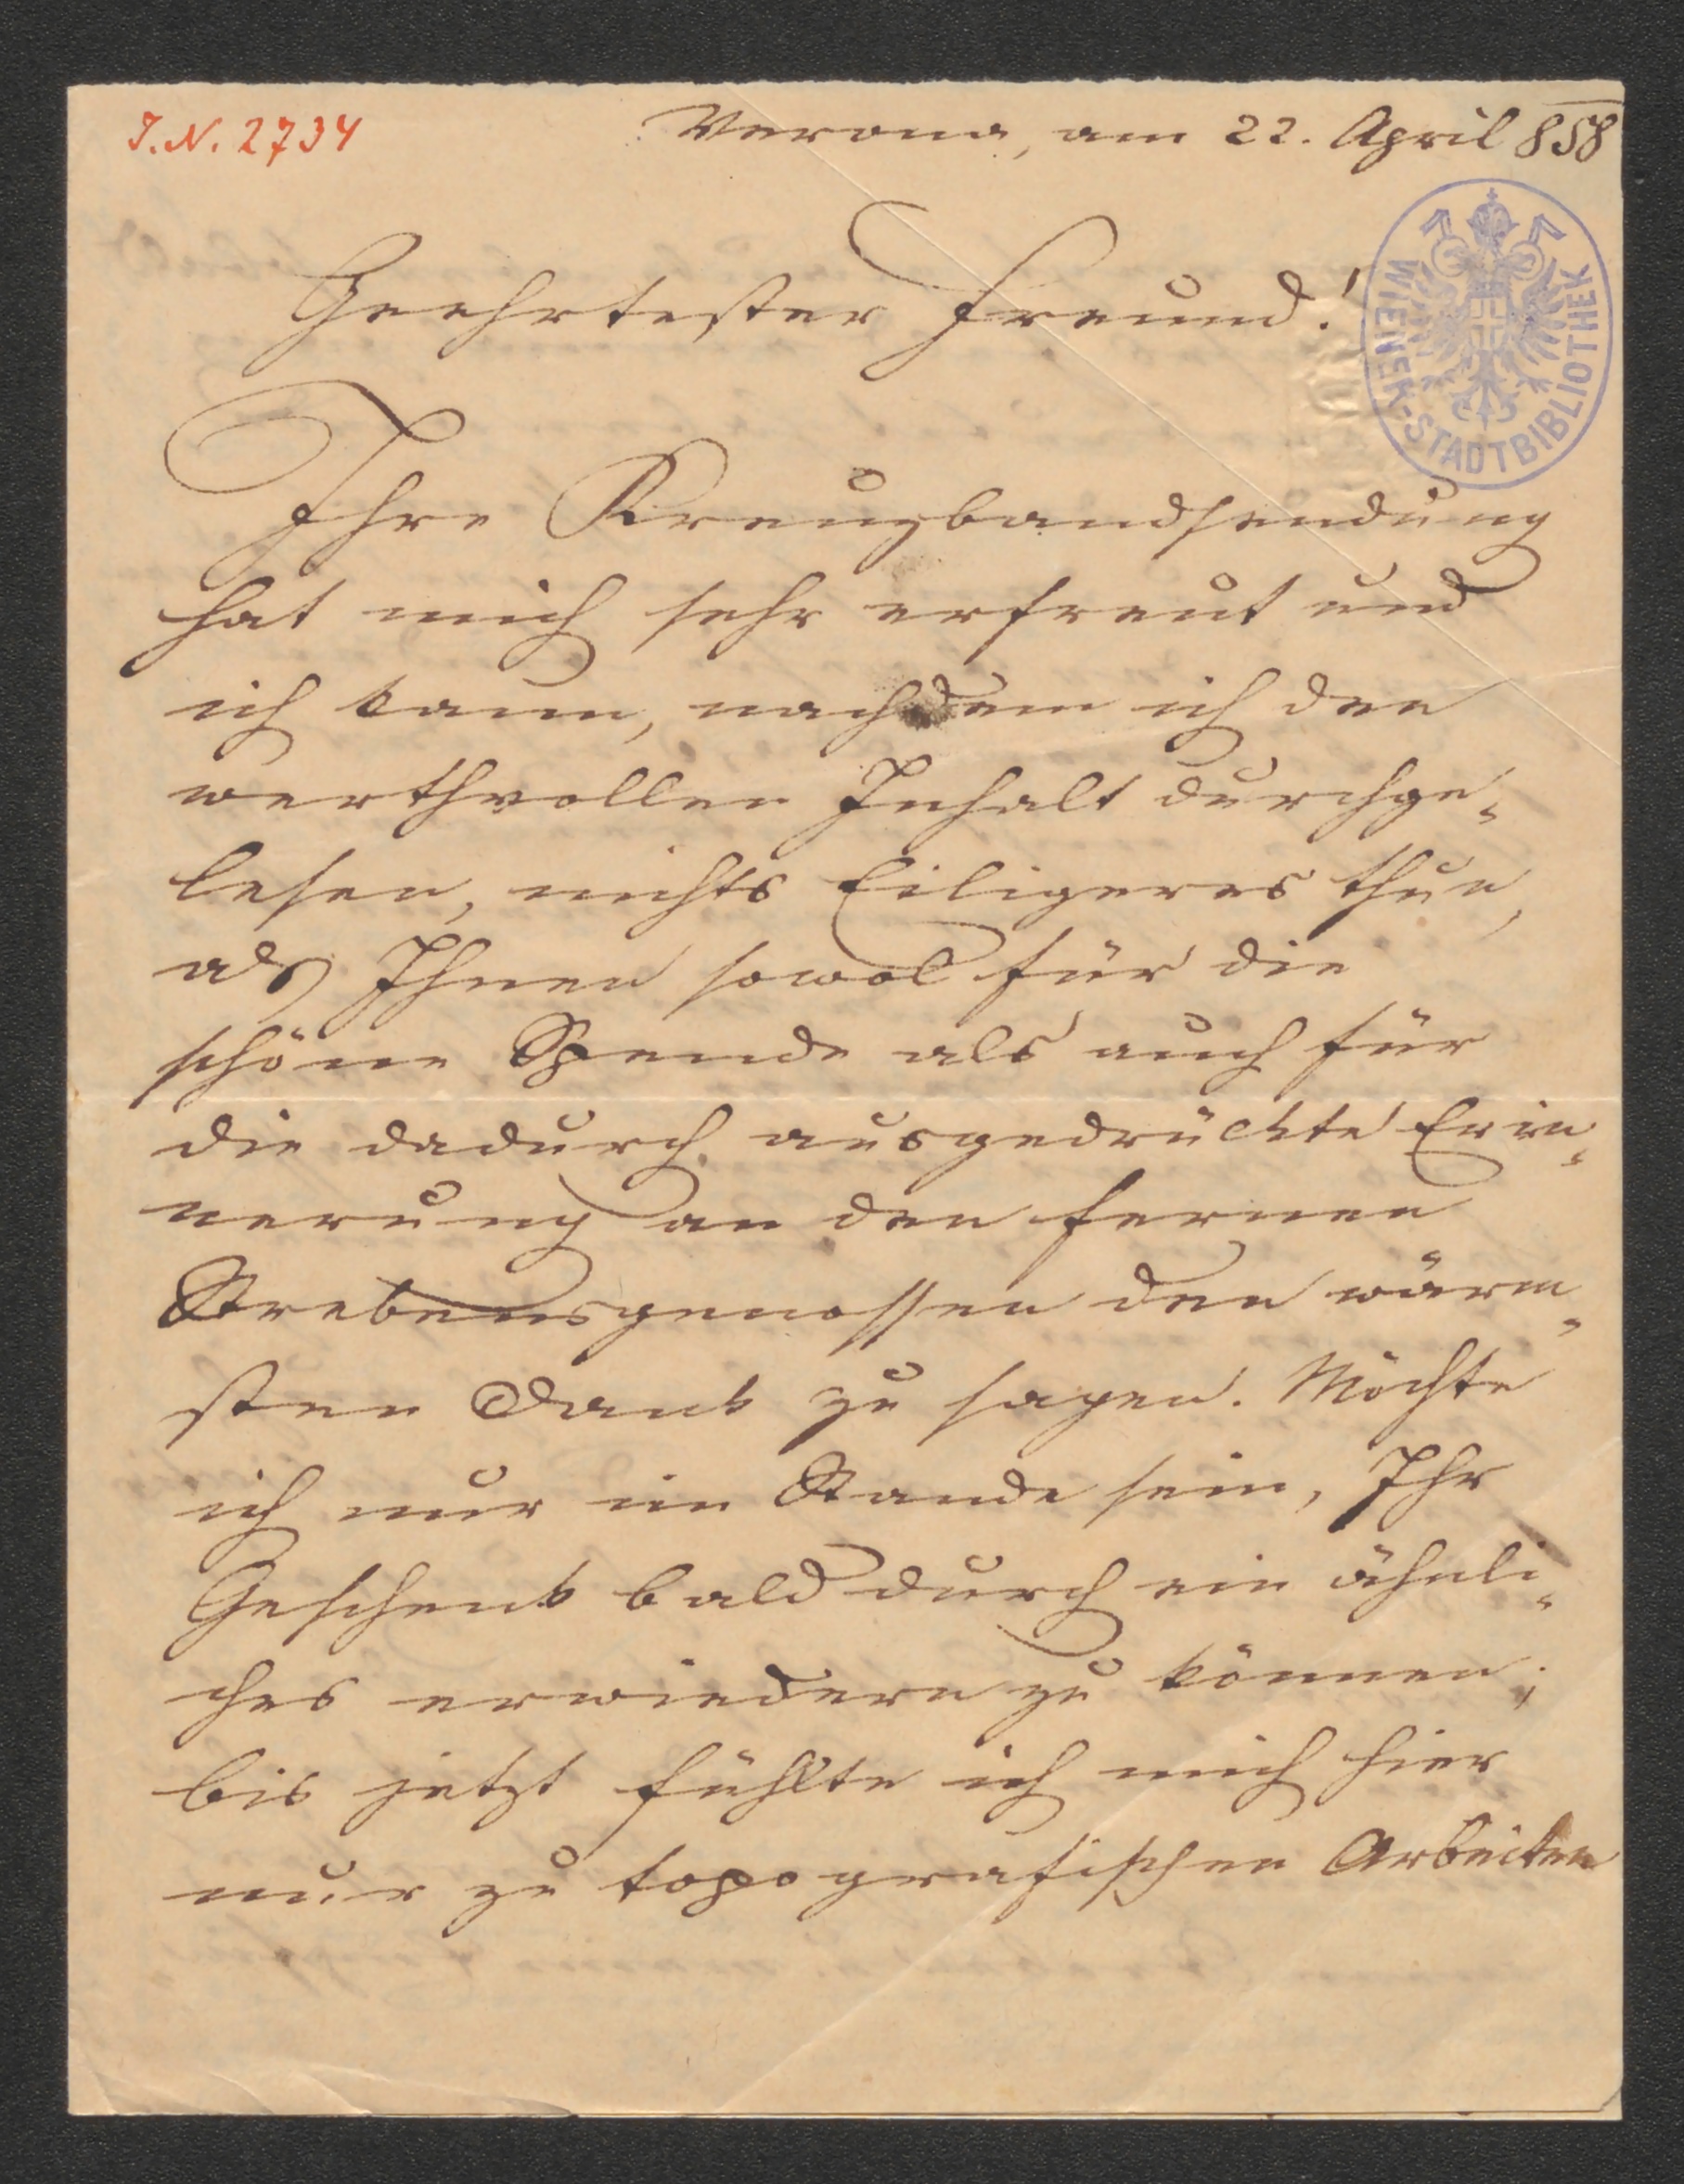 I.N. 2734
Verona, am 22. April 858
WIENER-STADTBIBLIOTHEK
Geehrtester Freund!
Ihre Kreuzbandsendung
hat mich sehr erfreut und
ich kann, nachdem ich den
werthvollen Inhalt durchge-
lesen, nichts Eiligeres thun,
als Ihnen sowol für die
schöne Spende als auch für
die dadurch ausgedrückte Erin-
nerung an den fernen
Strebensgenossen den wärm-
sten Dank zu sagen. Möchte
ich nur im Stande sein, Ihr
Geschenk bald durch ein ähnli-
ches erwiedern zu können;
bis jetzt fühlte ich mich hier
nur zu topografischen Arbeiten